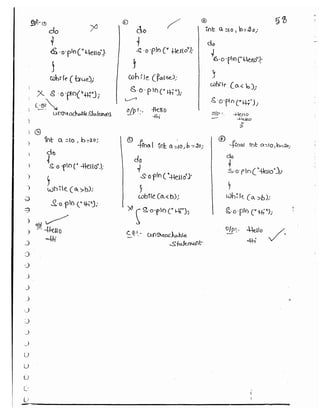 58
do
{
S.o.pln("Hello");
}
while (true);
X S.o.pln("Hi");
C.E:- unreachable Statement
②
do
{
S.o.pln("Hello");
}
while (false);
S.o.pln("Hi");
o/p:- Hello
Hi
③
int a=10, b=20;
do
{
S.o.pln("Hello");
}
while (a<b);
S.o.pln("Hi");
o/p:- Hello
Hello
④
int a=10, b=20;
do
{
S.o.pln("Hello");
}
while (a>b);
S.o.pln("Hi");
o/p Hello
Hi
⑤
final int a=10, b=20;
do
{
S.o.pln("Hello");
}
while (a<b);
X S.o.pln("Hi");
C.E:- unreachable
Statement
⑥
final int a=10, b=20;
do
{
S.o.pln("Hello");
}
while (a>b);
S.o.pln("Hi");
o/p:- Hello
Hi